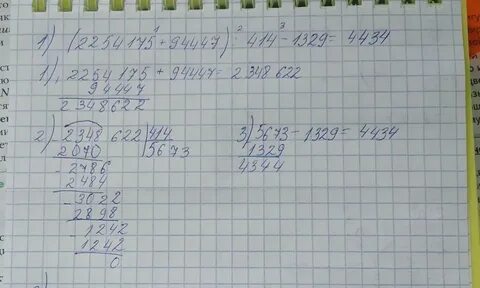 1) (2254175 + 94447) : 414 - 1329 = 4434
1) 2254175 + 94447 = 2348622
94447
2348622
2) 2348622 | 414
2070 5673
2786
2484
3022
2898
1242
1242
0
3) 5673 - 1329 = 4434
1329
4344